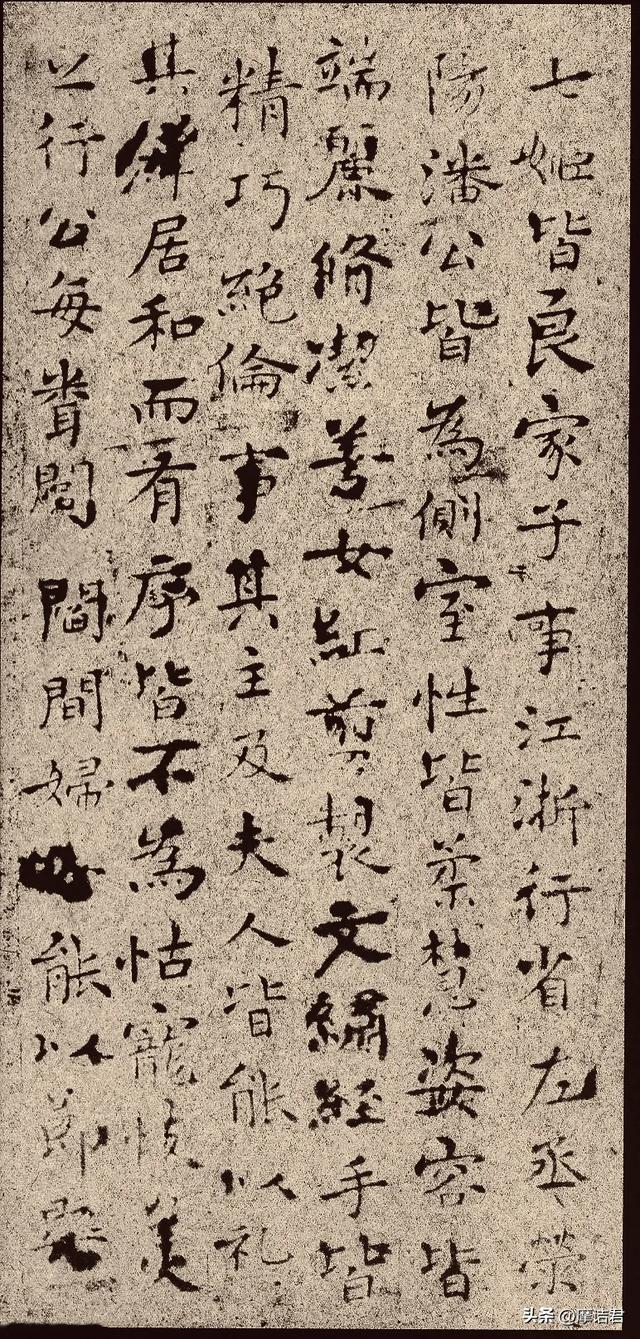 七姬皆良家子事江浙行省左丞榮
陽潘公皆為側室性皆柔慧姿容皆
端麗脩潔善女紅剪製文繡經手皆
精巧絕倫事其主及夫人皆能以礼
其羣居和而有序皆不為怙寵忮美
之行公每閻間婦能以節
头条 @摩诘君